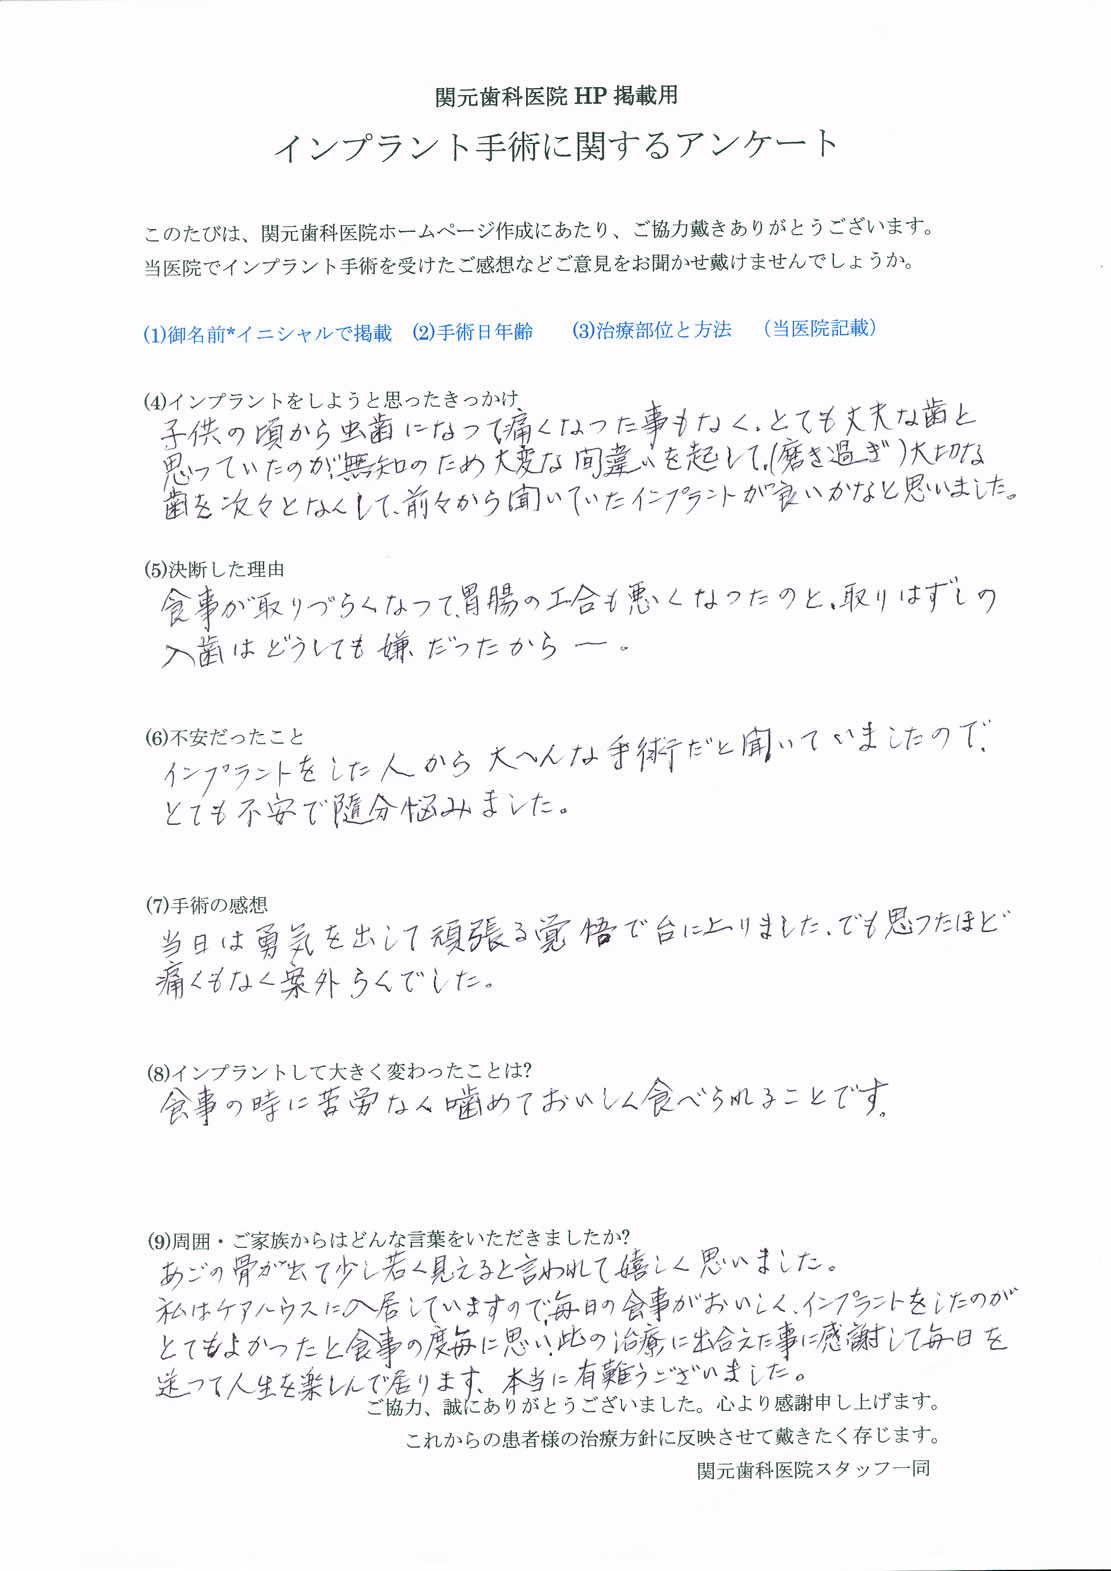 関元歯科医院 HP 掲載用
インプラント手術に関するアンケート
このたびは、関元歯科医院ホームページ作成にあたり、ご協力戴きありがとうございます。
当医院でインプラント手術を受けたご感想などご意見をお聞かせ戴けませんでしょうか。
(1)御名前*イニシャルで掲載 (2)手術日年齢 (3)治療部位と方法 （当医院記載）
(4)インプラントをしようと思ったきっかけ
子供の頃から虫歯になって痛くなった事もなく、とても丈夫な歯と
思っていたのが、無知のため大変な間違いを起して、(磨き過ぎ)大切な
歯を次々となくして、前々から聞いていたインプラントが良いかなと思いました。
(5)決断した理由
食事が取りづらくなって、胃腸の工合も悪くなったのと、取りはずしの
入歯はどうしても嫌だったから―。
(6)不安だったこと
インプラントをした人から大へんな手術だと聞いていましたので、
とても不安で随分悩みました。
(7)手術の感想
当日は勇気を出して頑張る覚悟で台に上りました、でも思ったほど
痛くもなく案外らくでした。
(8)インプラントして大きく変わったことは?
食事の時に苦労なく噛めておいしく食べられることです。
(9)周囲・ご家族からはどんな言葉をいただきましたか?
あごの骨が出て少し若く見えると言われて嬉しく思いました。
私はケアハウスに入居していますので、毎日の食事がおいしく、インプラントをしたのが
とてもよかったと食事の度毎に思い、此の治療に出合えた事に感謝して毎日を
送って人生を楽しんで居ります、本当に有難うございました。
ご協力、誠にありがとうございました。心より感謝申し上げます。
これからの患者様の治療方針に反映させて戴きたく存じます。
関元歯科医院スタッフ一同